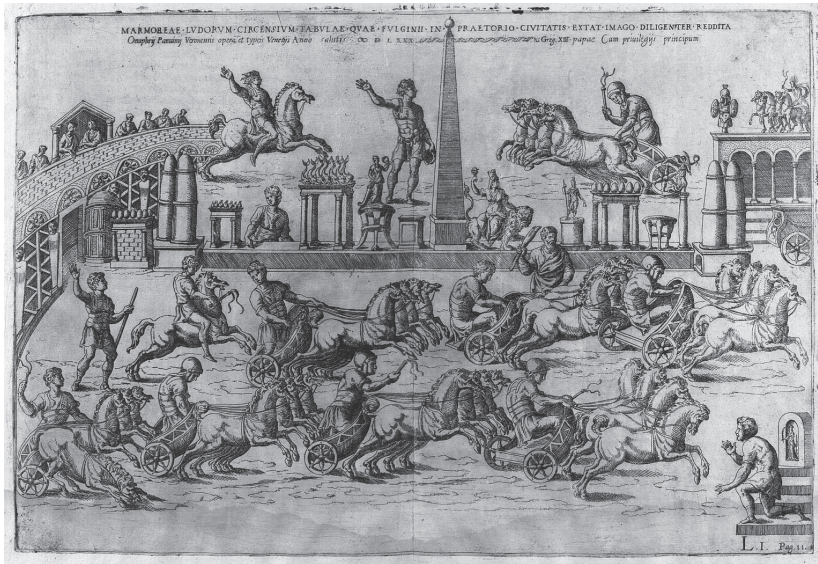 MARMOREAE · LVDORVM · CIRCENSIVM · TABVLAE · QVAE · FVLGINII · IN · PRAETORIO · CIVITATIS · EXTAT · IMAGO · DILIGENTER · REDDITA
Onuphrij Panuinij Veronensis opera, et typis Venetijs Anno salutis ꝏ D L XXX Greg. XIII papae Cum priuilegijs principum
L. I. Pag. 11.